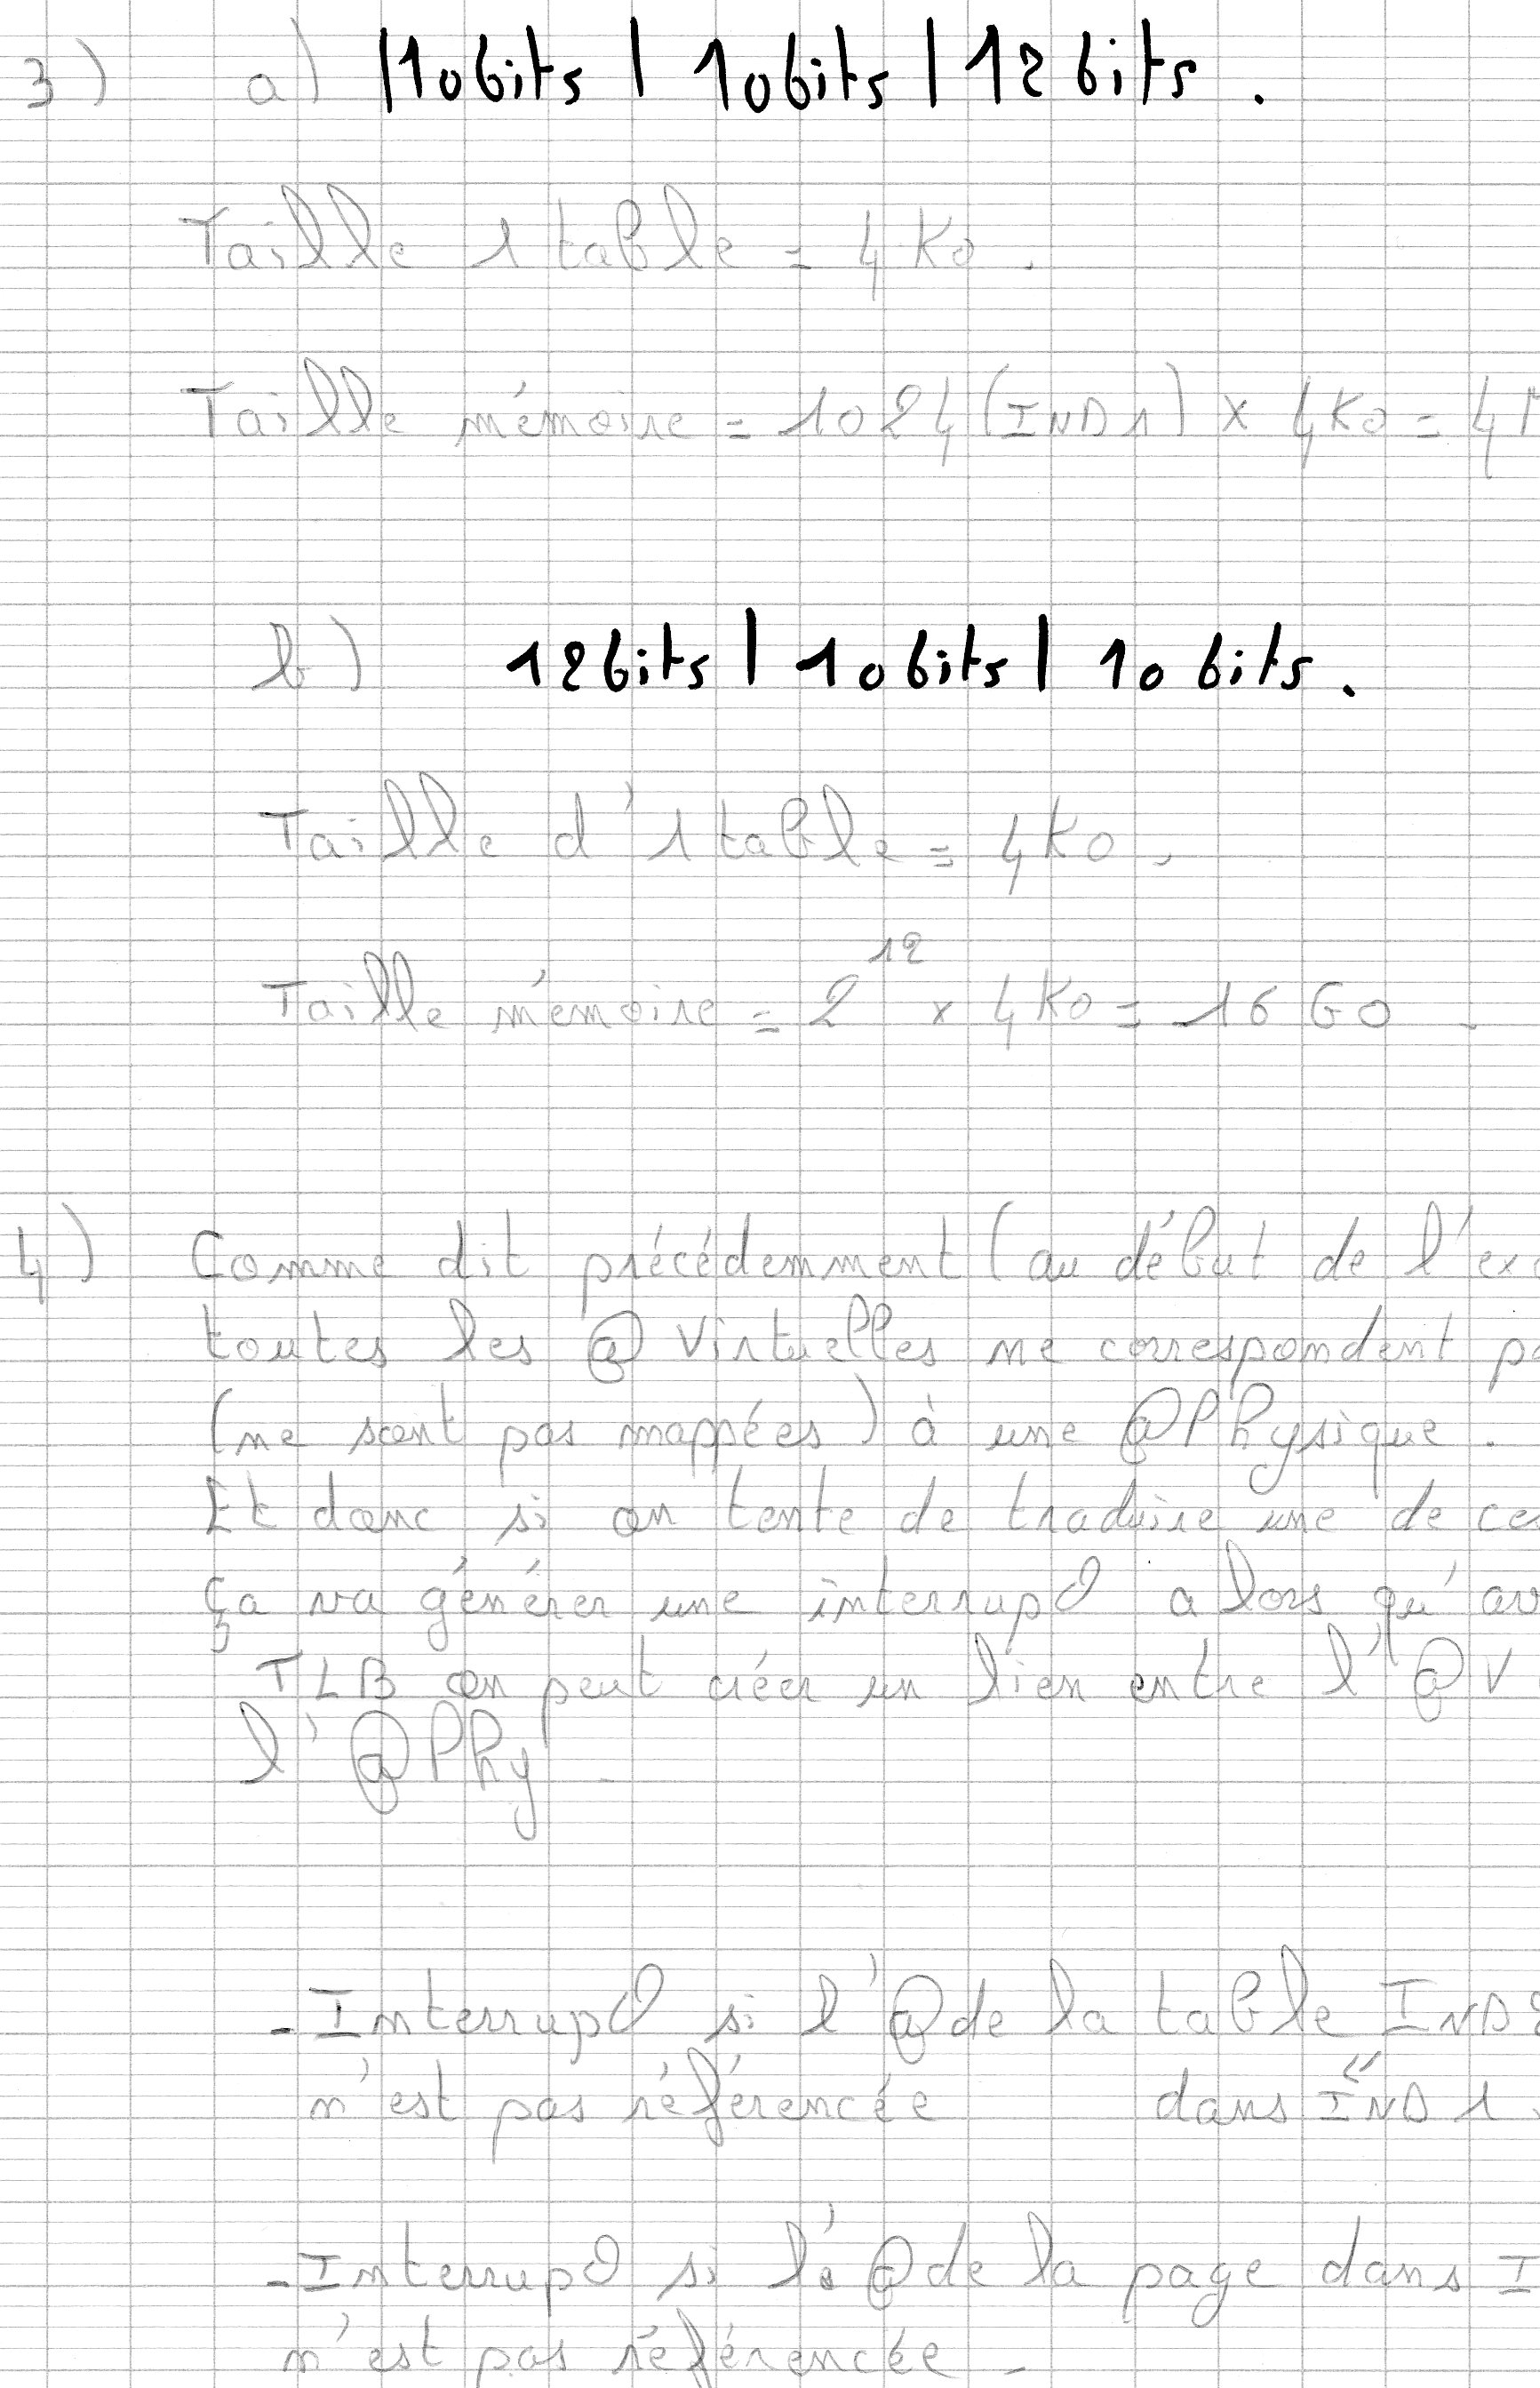 3) a) |10bits | 10bits | 12 bits.
Taille 1 table = 4Ko.
Taille mémoire = 1024(IND1) x 4Ko = 4
b) 12bits | 10bits | 10 bits.
Taille d'1 table = 4Ko.
Taille mémoire = 2^12 x 4Ko = 16 Go.
4) Comme dit précédemment (au début de l'exo
toutes les @ Virtuelles ne correspondent pa
(ne sont pas mappées) à une @Physique.
Et donc si on tente de traduire une de ces
ça va générer une interrup∂ alors qu'av
TLB on peut créer un lien entre l'@V
l'@Phy.
- Interrup∂ si l'@de la table IND2
n'est pas référencée dans IND1.
- Interrup∂ si l'@de la page dans I
n'est pas référencée.